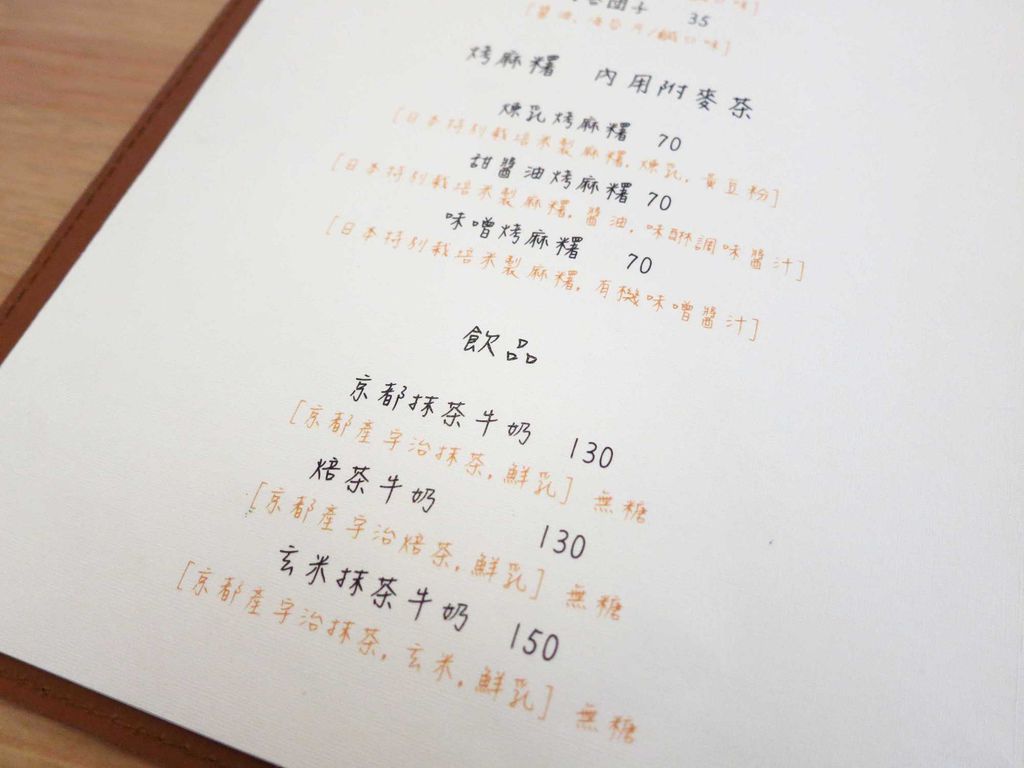 團子 35
[醬油,海苔片/鹹口味]
烤麻糬 內用附麥茶
煉乳烤麻糬 70
[日本特別栽培米製麻糬,煉乳,黃豆粉]
甜醬油烤麻糬 70
[日本特別栽培米製麻糬,醬油,味醂調味醬汁]
味噌烤麻糬 70
[日本特別栽培米製麻糬,有機味噌醬汁]
飲品
京都抹茶牛奶 130
[京都產宇治抹茶,鮮乳] 無糖
焙茶牛奶 130
[京都產宇治焙茶,鮮乳] 無糖
玄米抹茶牛奶 150
[京都產宇治抹茶,玄米,鮮乳] 無糖